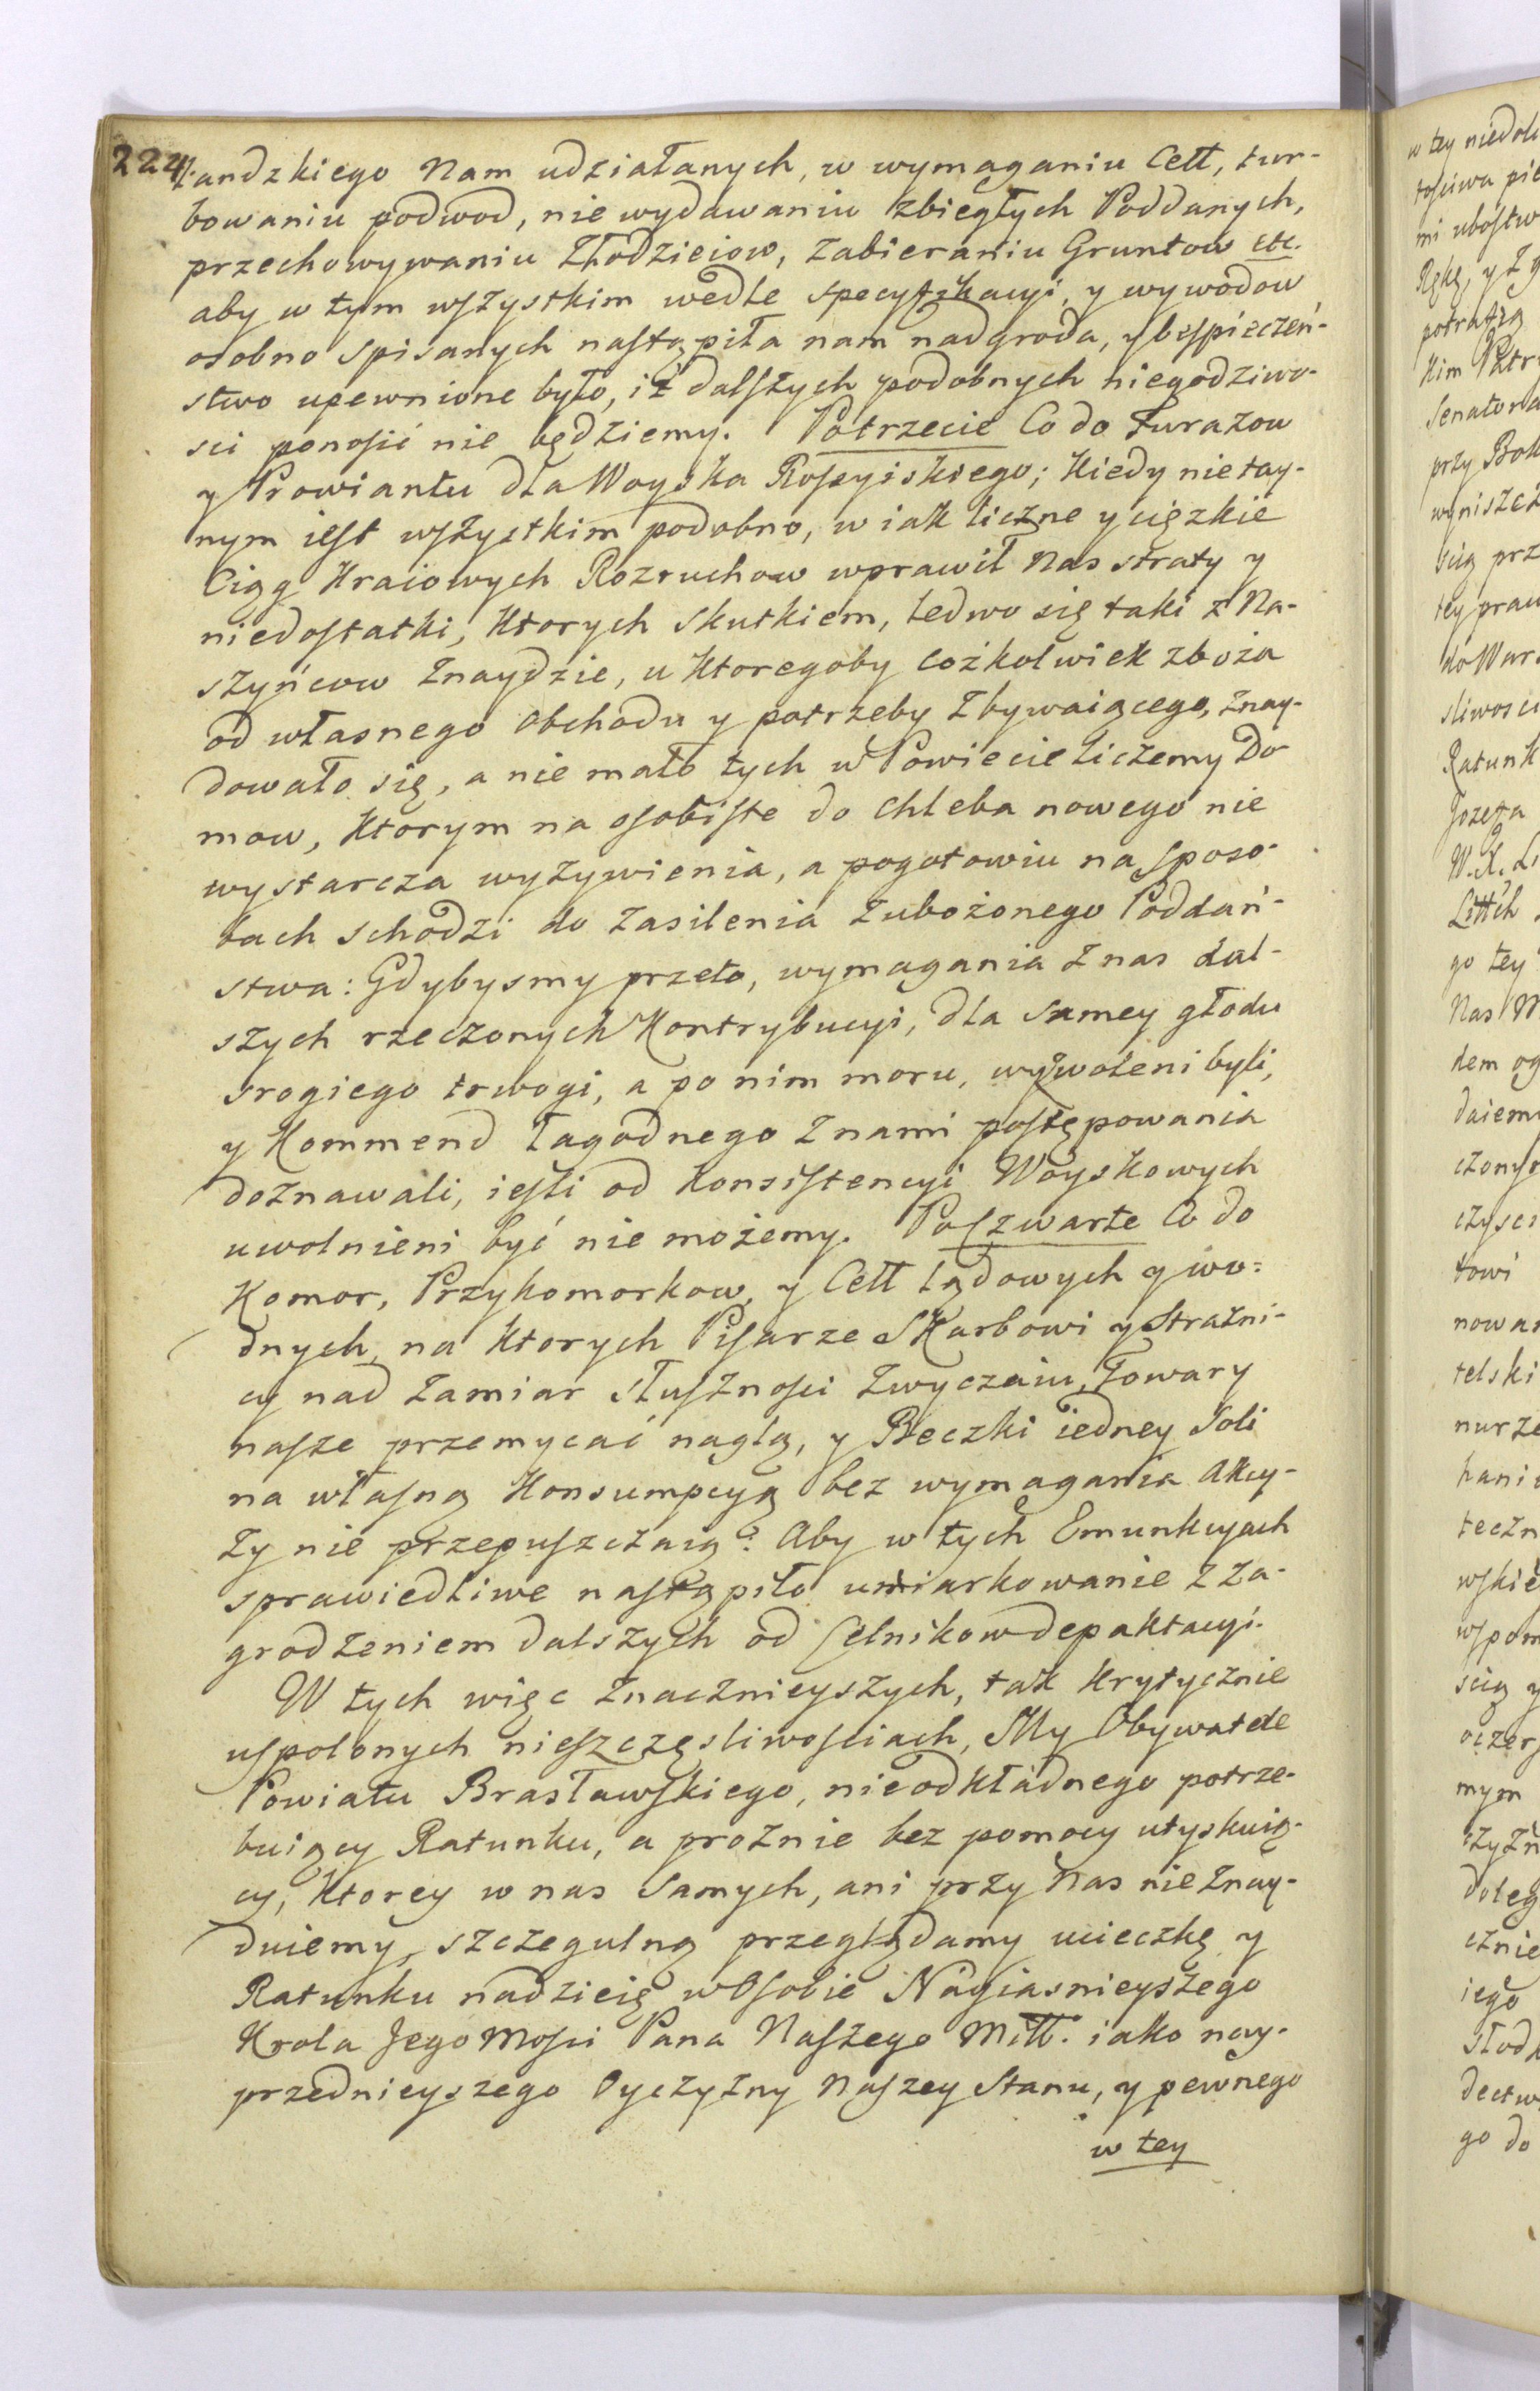 224.
landzkiego Nam udziałanych, w wymaganiu Cełł, tur-
bowaniu podwod, nie wydawaniu zbiegłych Poddanych,
przechowywaniu Złodzieiow, Zabieraniu Gruntow etc.
aby w tym wszystkim wedle specyfikacyi, y wywodow
osobno spisanych nastąpiła nam nadgroda, y bespieczeń-
stwo upewnione było, iż dalszych podobnych niegodziwo-
sci ponosić nie będziemy. Potrzecie Co do Furażow
y Prowiantu dla Woyska Rossyiskiego; Kiedy nie tay-
nym iest wszystkim podobno, w iak liczne y cięzkie
Ciąg Kraiowych Rozruchow wprawił Nas straty y
niedostatki, Ktorych skutkiem, ledwo się taki z Na-
szyńcow znaydzie, u Ktoregoby cożkolwiek zboża
od własnego obchodu y potrzeby zbywaiącego, znay-
dowało się, a nie mało tych w Powiecie liczemy Do
mow, Ktorym na osobiste do chleba nowego nie
wystarcza wyżywienia, a pogotowiu na sposo-
bach schodzi do Zasilenia zubożonego Poddań-
stwa: Gdybysmy przeto, wymagania z nas dal-
szych rzeczonych Kontrybucyi, dla samey głodu
srogiego trwogi, a po nim moru, wyzwoleni byli,
y Kommend łagodnego z nami postępowania
doznawali, iesli od Konsistencyi Woyskowych
uwolnieni być nie możemy. Poczwarte Co do
Komor, Przykomorkow, y Cełł lądowych y wo=
dnych, na Ktorych Pisarze Skarbowi y Strażni-
cy nad zamiar słusznosci zwyczaiu, Towary
nasze przemycać naglą, y Beczki iedney Soli
na własną Konsumpcyą bez wymagania Akcy-
zy nie przepuszczaią: Aby w tych Emunkcyach
sprawiedliwe nastąpiło umiarkowanie z za-
grodzeniem dalszych od Celnikow depaktacyi.
W tych więc znacznieyszych, tak krytycznie
uspolonych nieszczęsliwosciach, My Obywatele
Powiatu Brasławskiego, nieodkładnego potrze-
buiący Ratunku, a prożnie bez pomocy utyskuią-
cy, Ktorey w nas samych, ani przy Nas nie znay-
duiemy, szczegulną przeglądamy ucieczkę y
Ratunku nadzieię w Osobie Nayiasnieyszego
Krola Jego Mosci Pana Naszego Miłł. iako nay-
przednieyszego Oyczyzny Naszey Stanu, y pewnego
w tey
w tey niedol
tosciwa pie
mi ubostw
Rękę, y z
potrafią
kim Patr
Senatora
przy Bok
wyniszcz
scią prz
tey praw
do Wars
sliwosci
Ratunk
Jozefa
W. X. Li
Litt́ch
go tey
Nas M
dem og
daiem
czony
czysci
towi
nowan
telski
nurze
hani
teczn
wskie
wspom
scią y
oczer
mym
czyzn
doleg
cznie
iego
słod
dectw
go do